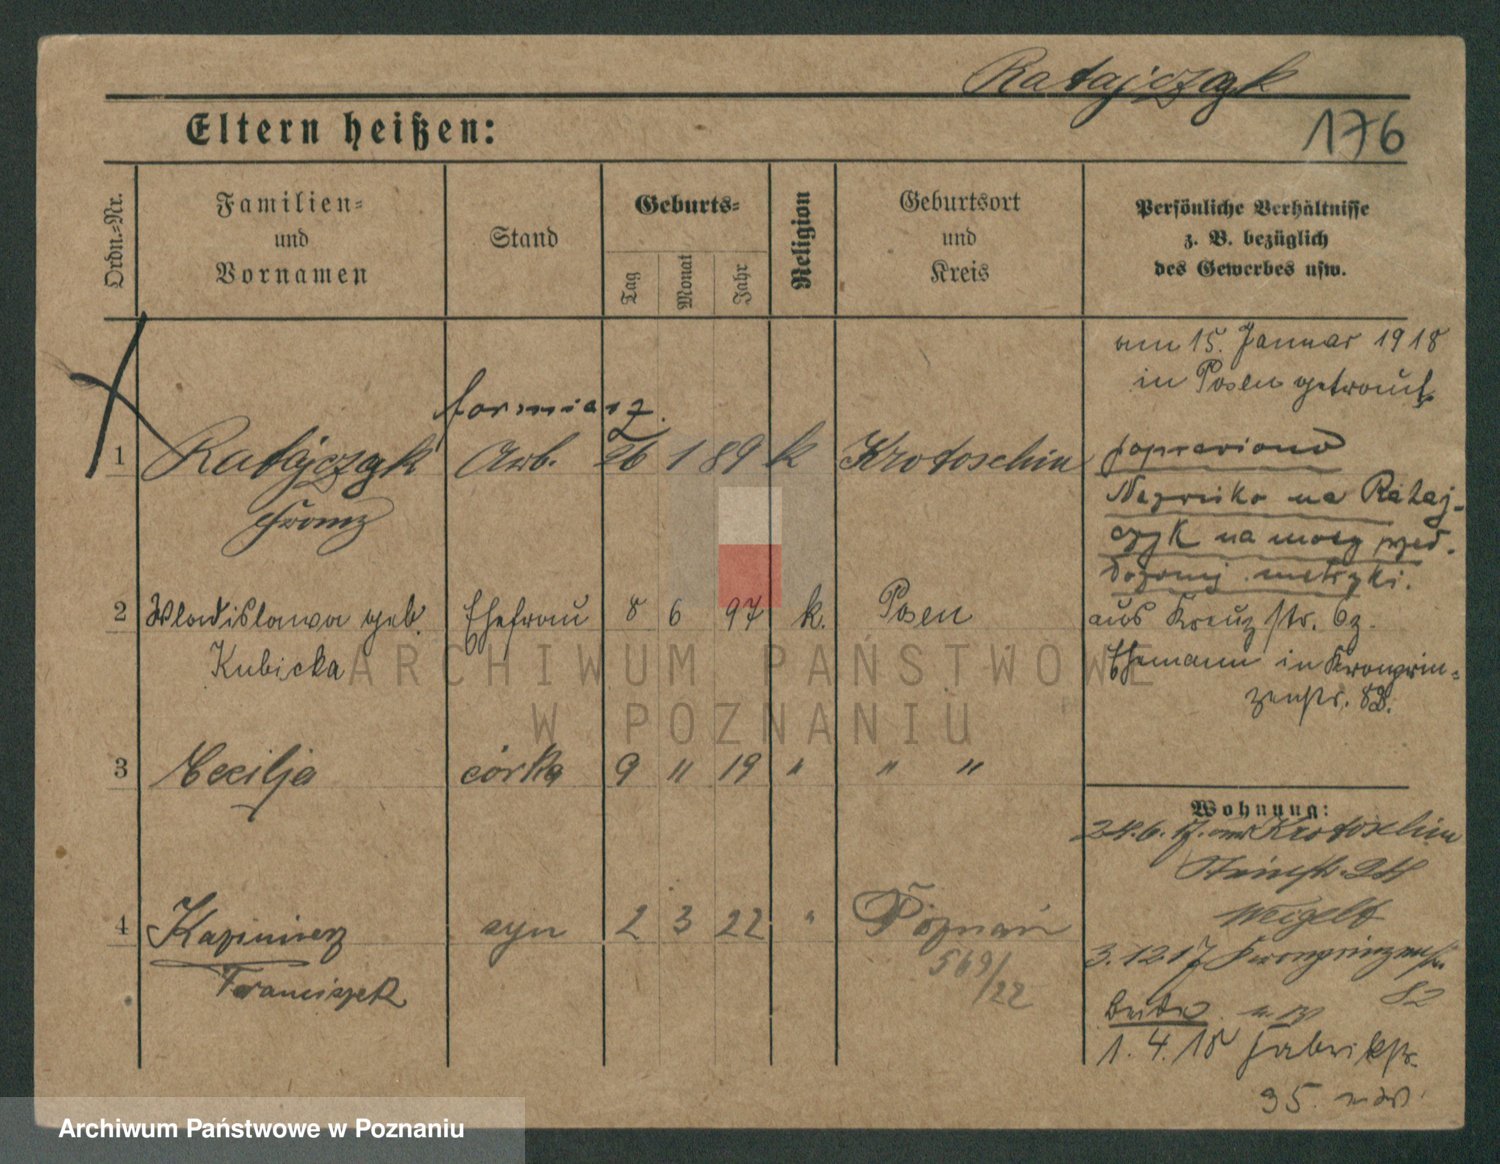 Ratajczyk
176
Eltern heißen:
Ordn.-Nr.
Familien-
und
Vornamen
Stand
Geburts-
Tag
Monat
Jahr
Religion
Geburtsort
und
Kreis
Persönliche Verhältnisse
z. B. bezüglich
des Gewerbes usw.
am 15. Januar 1918
in Posen getraut
formierz.
1 Ratajczyk Arb. 26 1 89 k Krotoschin
Franz
poprawiono
Nazwisko na Rataj-
czyk na mocy przed-
metryki.
2 Wladislawa geb. Ehefrau 8 6 97 k. Posen
Kubicka
aus Kreuzstr. 6
Ehemann in Kronprin-
zenstr. 82.
3 Cecilja córka 9 11 19 " " "
Wohnung:
24.6.17. aus Krotoschin
4 Kazimierz syn 2 3 22 " Poznań
Franciszek
569/22
3.12.17 Kronprinzenstr.
82
1.4.18 Fabrikstr.
35.
ARCHIWUM PAŃSTWOWE
W POZNANIU
Archiwum Państwowe w Poznaniu